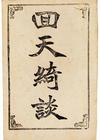 回天綺談